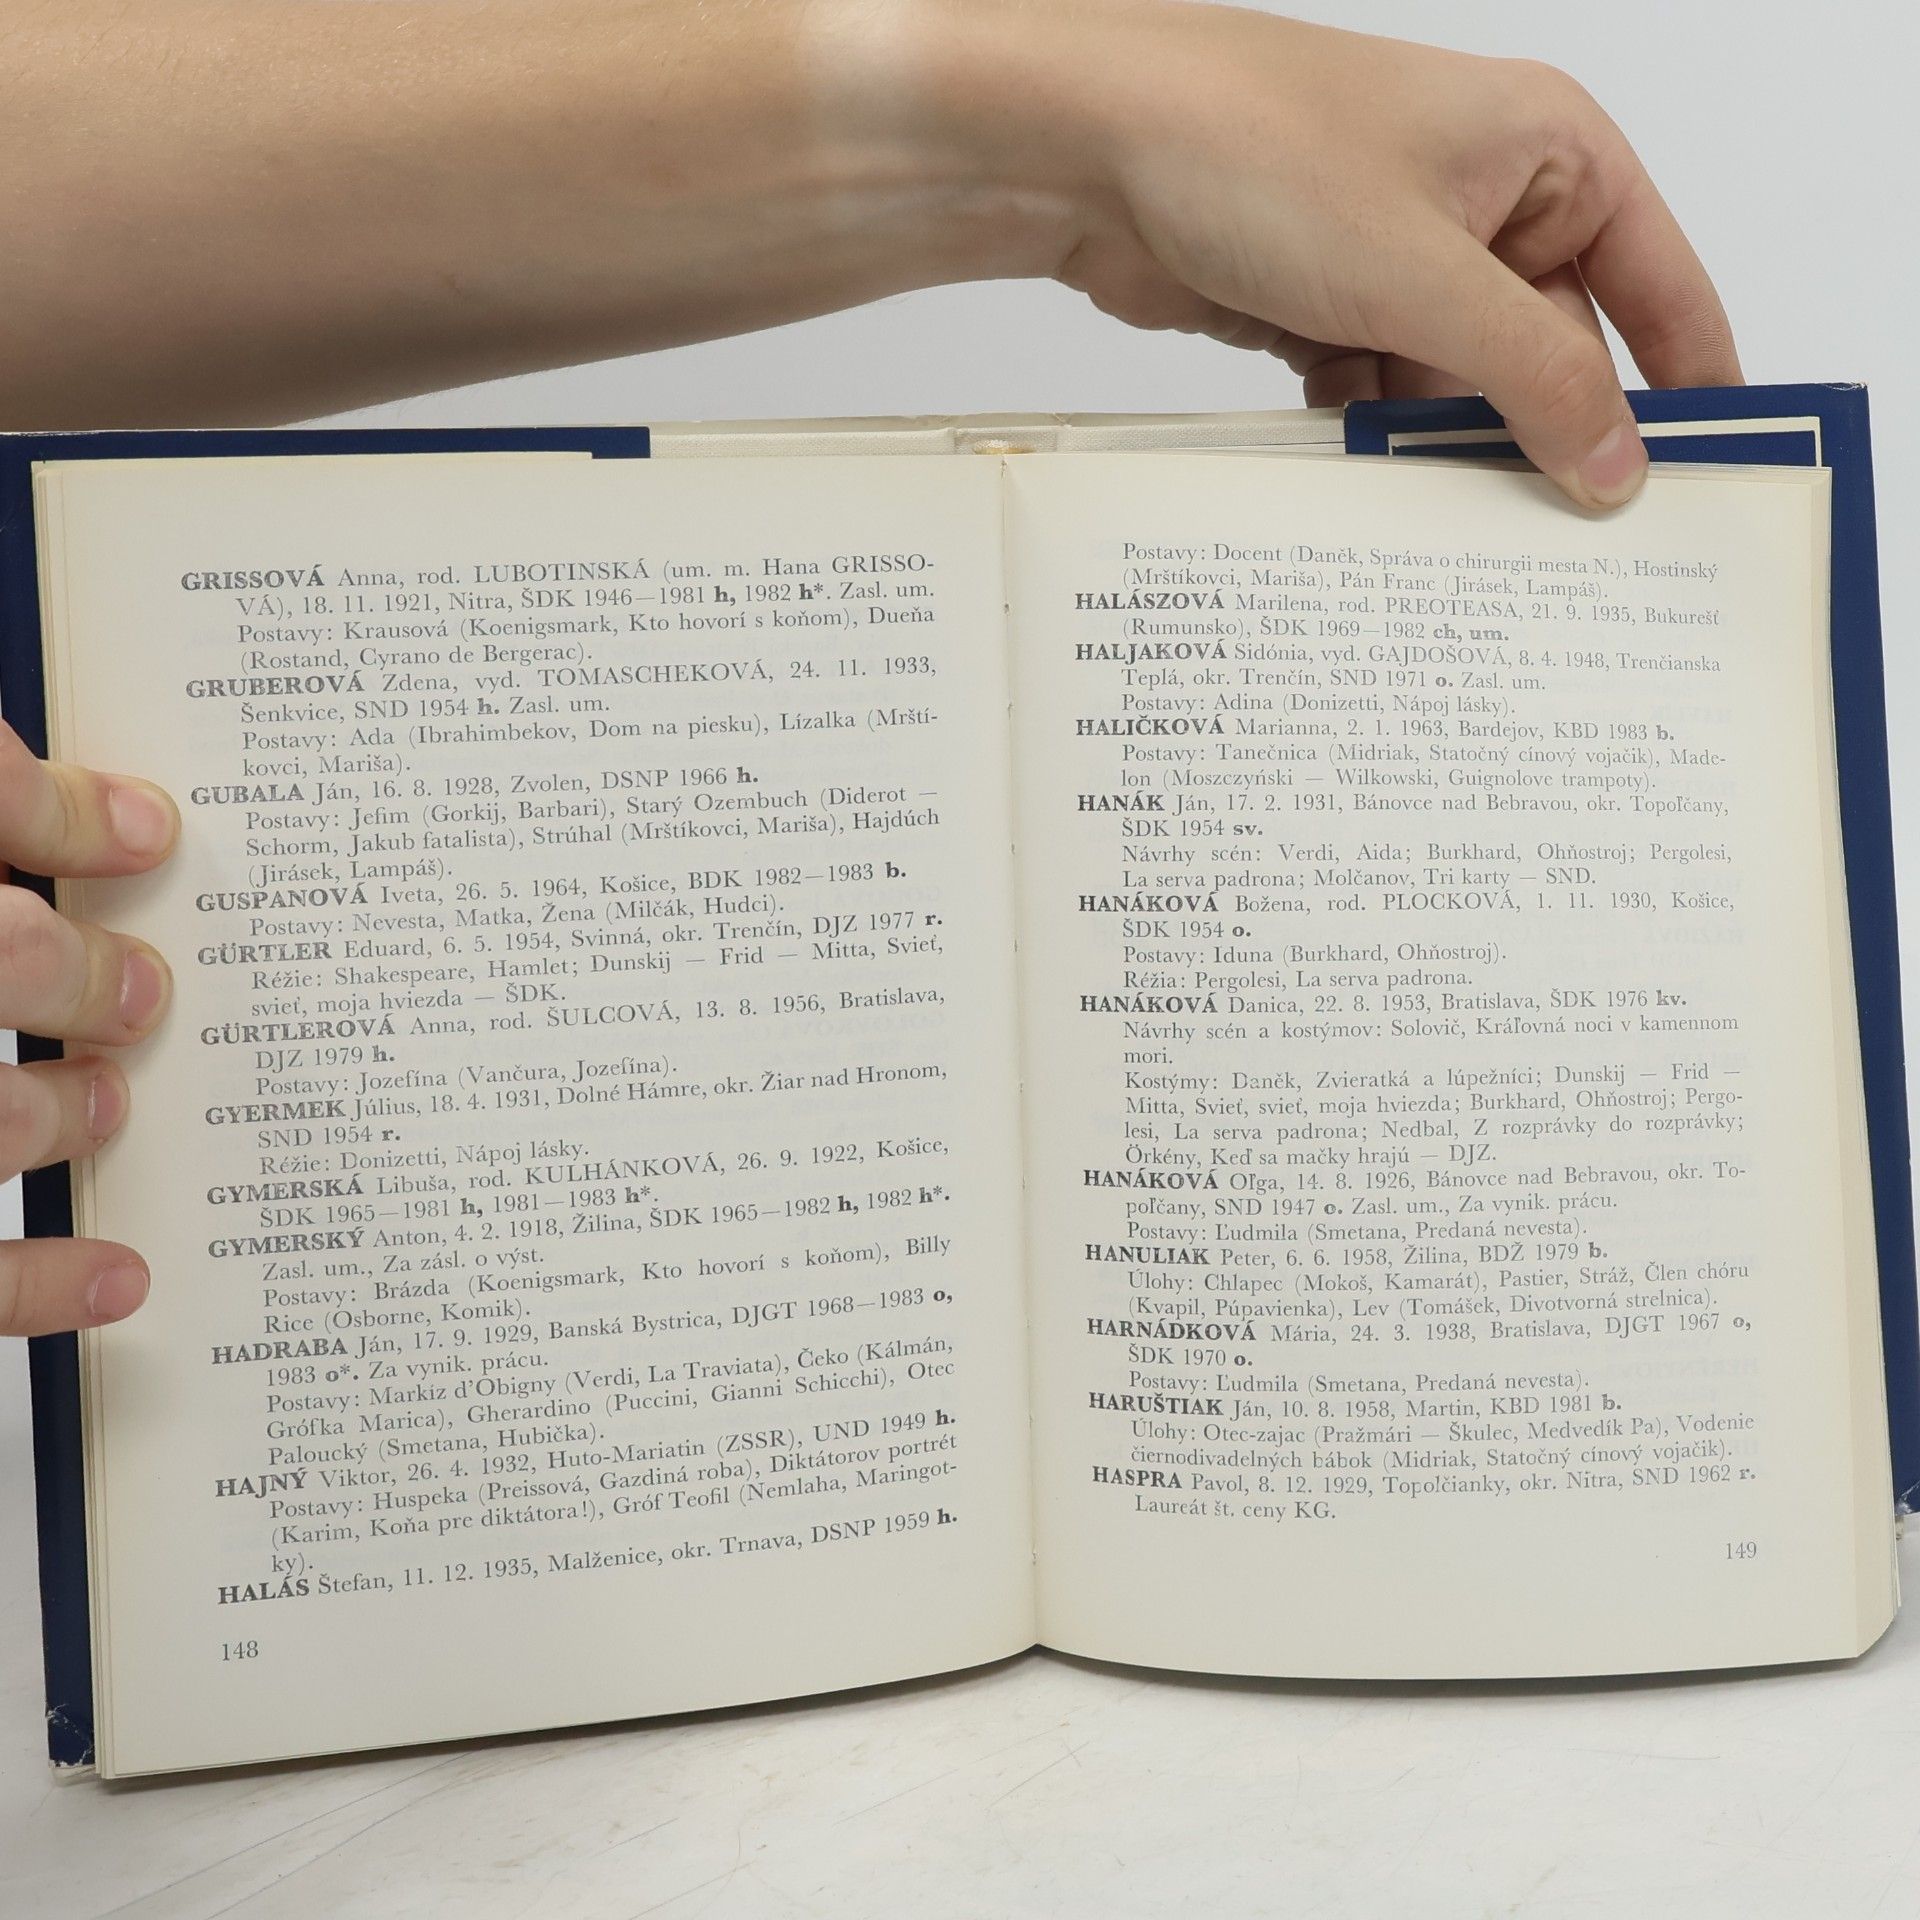 GRISSOVÁ Anna, rod. LUBOTINSKÁ (um. m. Hana GRISSO-
VÁ), 18. 11. 1921, Nitra, ŠDK 1946—1981 h, 1982 h*. Zasl. um.
Postavy: Krausová (Koenigsmark, Kto hovorí s koňom), Dueňa
(Rostand, Cyrano de Bergerac).
GRUBEROVÁ Zdena, vyd. TOMASCHEKOVÁ, 24. 11. 1933,
Šenkvice, SND 1954 h. Zasl. um.
Postavy: Ada (Ibrahimbekov, Dom na piesku), Lízalka (Mrští-
kovci, Mariša).
GUBALA Ján, 16. 8. 1928, Zvolen, DSNP 1966 h.
Postavy: Jefim (Gorkij, Barbari), Starý Ozembuch (Diderot —
Schorm, Jakub fatalista), Strúhal (Mrštíkovci, Mariša), Hajdúch
(Jirásek, Lampáš).
GUSPANOVÁ Iveta, 26. 5. 1964, Košice, BDK 1982—1983 b.
Postavy: Nevesta, Matka, Žena (Milčák, Hudci).
GÜRTLER Eduard, 6. 5. 1954, Svinná, okr. Trenčín, DJZ 1977 r.
Réžie: Shakespeare, Hamlet; Dunskij — Frid — Mitta, Svieť,
svieť, moja hviezda — ŠDK.
GÜRTLEROVÁ Anna, rod. ŠULCOVÁ, 13. 8. 1956, Bratislava,
DJZ 1979 h.
Postavy: Jozefína (Vančura, Jozefína).
GYERMEK Július, 18. 4. 1931, Dolné Hámre, okr. Žiar nad Hronom,
SND 1954 r.
Réžie: Donizetti, Nápoj lásky.
GYMERSKÁ Libuša, rod. KULHÁNKOVÁ, 26. 9. 1922, Košice,
ŠDK 1965—1981 h, 1981—1983 h*.
GYMERSKÝ Anton, 4. 2. 1918, Žilina, ŠDK 1965—1982 h, 1982 h*.
Zasl. um., Za zásl. o výst.
Postavy: Brázda (Koenigsmark, Kto hovorí s koňom), Billy
Rice (Osborne, Komik).
HADRABA Ján, 17. 9. 1929, Banská Bystrica, DJGT 1968—1983 o,
1983 o*. Za vynik. prácu.
Postavy: Markíz d'Obigny (Verdi, La Traviata), Čeko (Kálmán,
Grófka Marica), Gherardino (Puccini, Gianni Schicchi), Otec
Paloucký (Smetana, Hubička).
HAJNÝ Viktor, 26. 4. 1932, Huto-Mariatin (ZSSR), UND 1949 h.
Postavy: Huspeka (Preissová, Gazdiná roba), Diktátorov portrét
(Karim, Koňa pre diktátora!), Gróf Teofil (Nemlaha, Maringot-
ky).
HALÁS Štefan, 11. 12. 1935, Malženice, okr. Trnava, DSNP 1959 h.
148
Postavy: Docent (Daněk, Správa o chirurgii mesta N.), Hostinský
(Mrštíkovci, Mariša), Pán Franc (Jirásek, Lampáš).
HALÁSZOVÁ Marilena, rod. PREOTEASA, 21. 9. 1935, Bukurešť
(Rumunsko), ŠDK 1969—1982 ch, um.
HALJAKOVÁ Sidónia, vyd. GAJDOŠOVÁ, 8. 4. 1948, Trenčianska
Teplá, okr. Trenčín, SND 1971 o. Zasl. um.
Postavy: Adina (Donizetti, Nápoj lásky).
HALIČKOVÁ Marianna, 2. 1. 1963, Bardejov, KBD 1983 b.
Postavy: Tanečnica (Midriak, Statočný cínový vojačik), Made-
lon (Moszczyński — Wilkowski, Guignolove trampoty).
HANÁK Ján, 17. 2. 1931, Bánovce nad Bebravou, okr. Topoľčany,
ŠDK 1954 sv.
Návrhy scén: Verdi, Aida; Burkhard, Ohňostroj; Pergolesi,
La serva padrona; Molčanov, Tri karty — SND.
HANÁKOVÁ Božena, rod. PLOCKOVÁ, 1. 11. 1930, Košice,
ŠDK 1954 o.
Postavy: Iduna (Burkhard, Ohňostroj).
Réžia: Pergolesi, La serva padrona.
HANÁKOVÁ Danica, 22. 8. 1953, Bratislava, ŠDK 1976 kv.
Návrhy scén a kostýmov: Solovič, Kráľovná noci v kamennom
mori.
Kostýmy: Daněk, Zvieratká a lúpežníci; Dunskij — Frid —
Mitta, Svieť, svieť, moja hviezda; Burkhard, Ohňostroj; Pergo-
lesi, La serva padrona; Nedbal, Z rozprávky do rozprávky;
Örkény, Keď sa mačky hrajú — DJZ.
HANÁKOVÁ Oľga, 14. 8. 1926, Bánovce nad Bebravou, okr. To-
poľčany, SND 1947 o. Zasl. um., Za vynik. prácu.
Postavy: Ľudmila (Smetana, Predaná nevesta).
HANULIAK Peter, 6. 6. 1958, Žilina, BDŽ 1979 b.
Úlohy: Chlapec (Mokoš, Kamarát), Pastier, Stráž, Člen chóru
(Kvapil, Púpavienka), Lev (Tomášek, Divotvorná strelnica).
HARNÁDKOVÁ Mária, 24. 3. 1938, Bratislava, DJGT 1967 o,
ŠDK 1970 o.
Postavy: Ľudmila (Smetana, Predaná nevesta).
HARUŠTIAK Ján, 10. 8. 1958, Martin, KBD 1981 b.
Úlohy: Otec-zajac (Pražmári — Škulec, Medvedík Pa), Vodenie
čiernodivadelných bábok (Midriak, Statočný cínový vojačik).
HASPRA Pavol, 8. 12. 1929, Topoľčianky, okr. Nitra, SND 1962 r.
Laureát št. ceny KG.
149